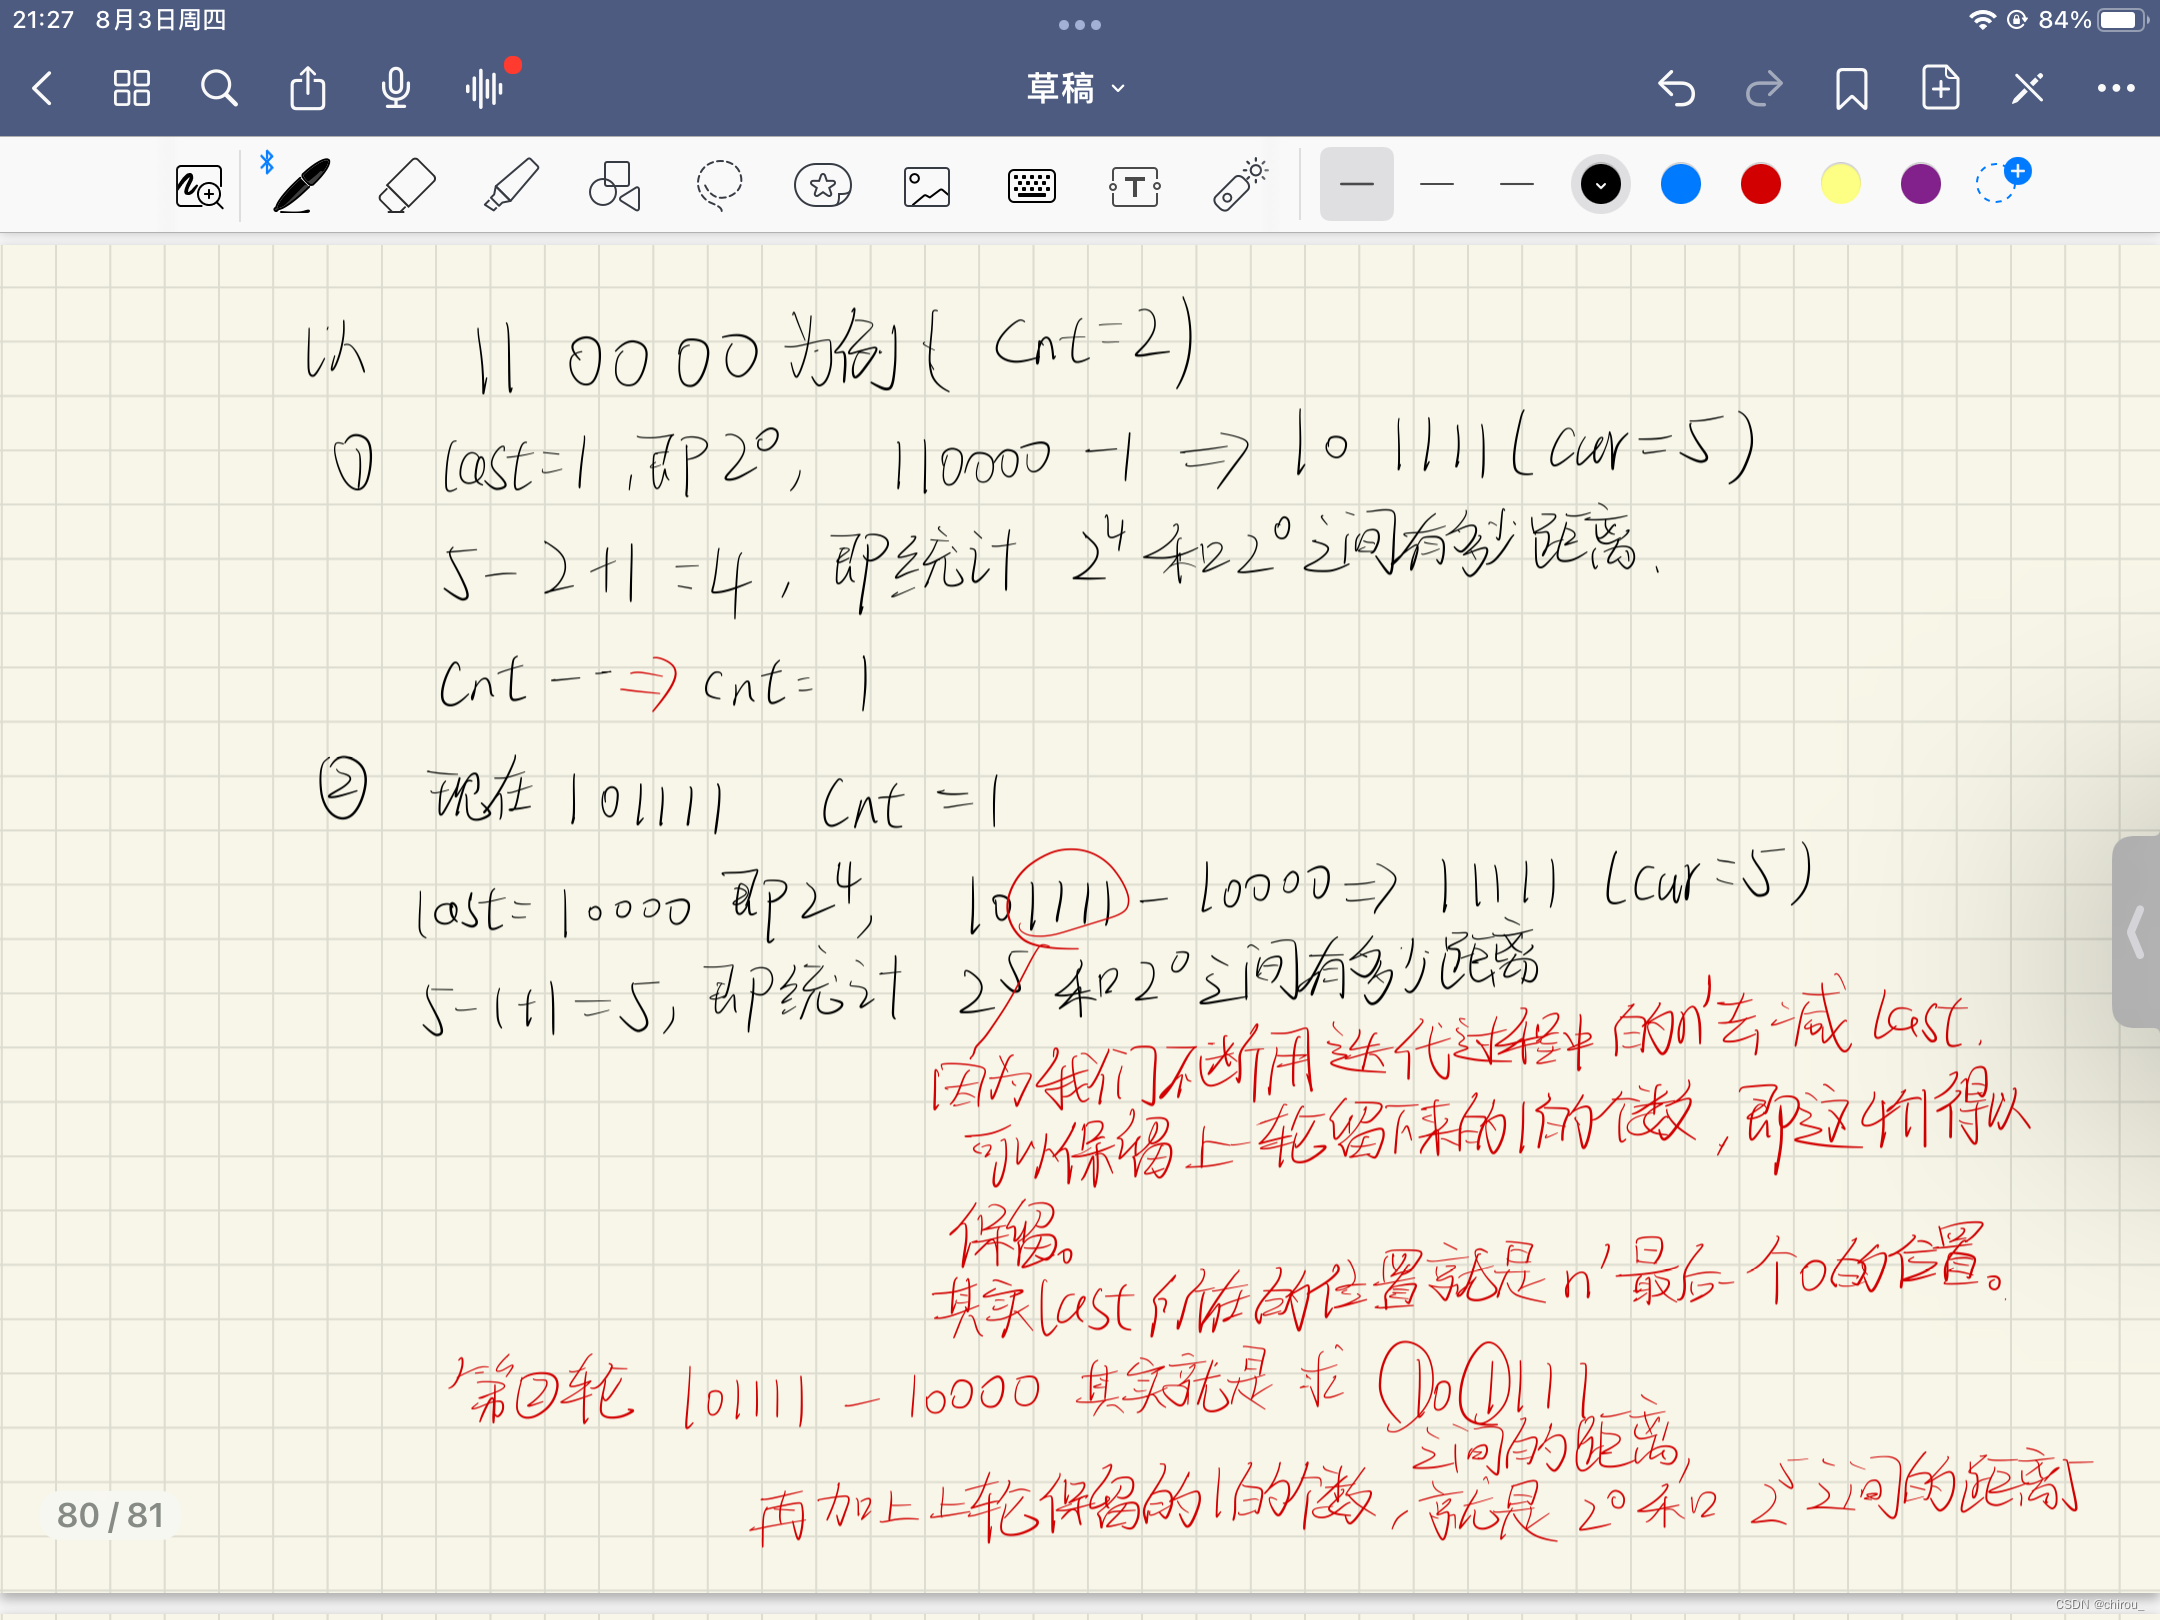 21:27 8月3日周四
84%
草稿
以 110000为例(cnt=2)
① last=1,即2⁰, 110000-1⇒101111(cur=5)
5-2+1=4,即统计 2⁴和2⁰之间有多少距离.
cnt--⇒cnt=1
② 现在101111 cnt=1
last=10000即2⁴, 101111-10000⇒11111(cur=5)
5-1+1=5,即统计 2⁵和2⁰之间有多少距离
因为我们不断用迭代过程中的n'去减last.
可以保留上一轮留下来的1的个数,即这4个1得以
保留。
其实last所在的位置就是n'最后一个0的位置。
第②轮 101111-10000 其实就是求 101111
之间的距离,
再加上上轮保留的1的个数,就是2⁰和2⁵之间的距离了
80 / 81
CSDN @chirou_